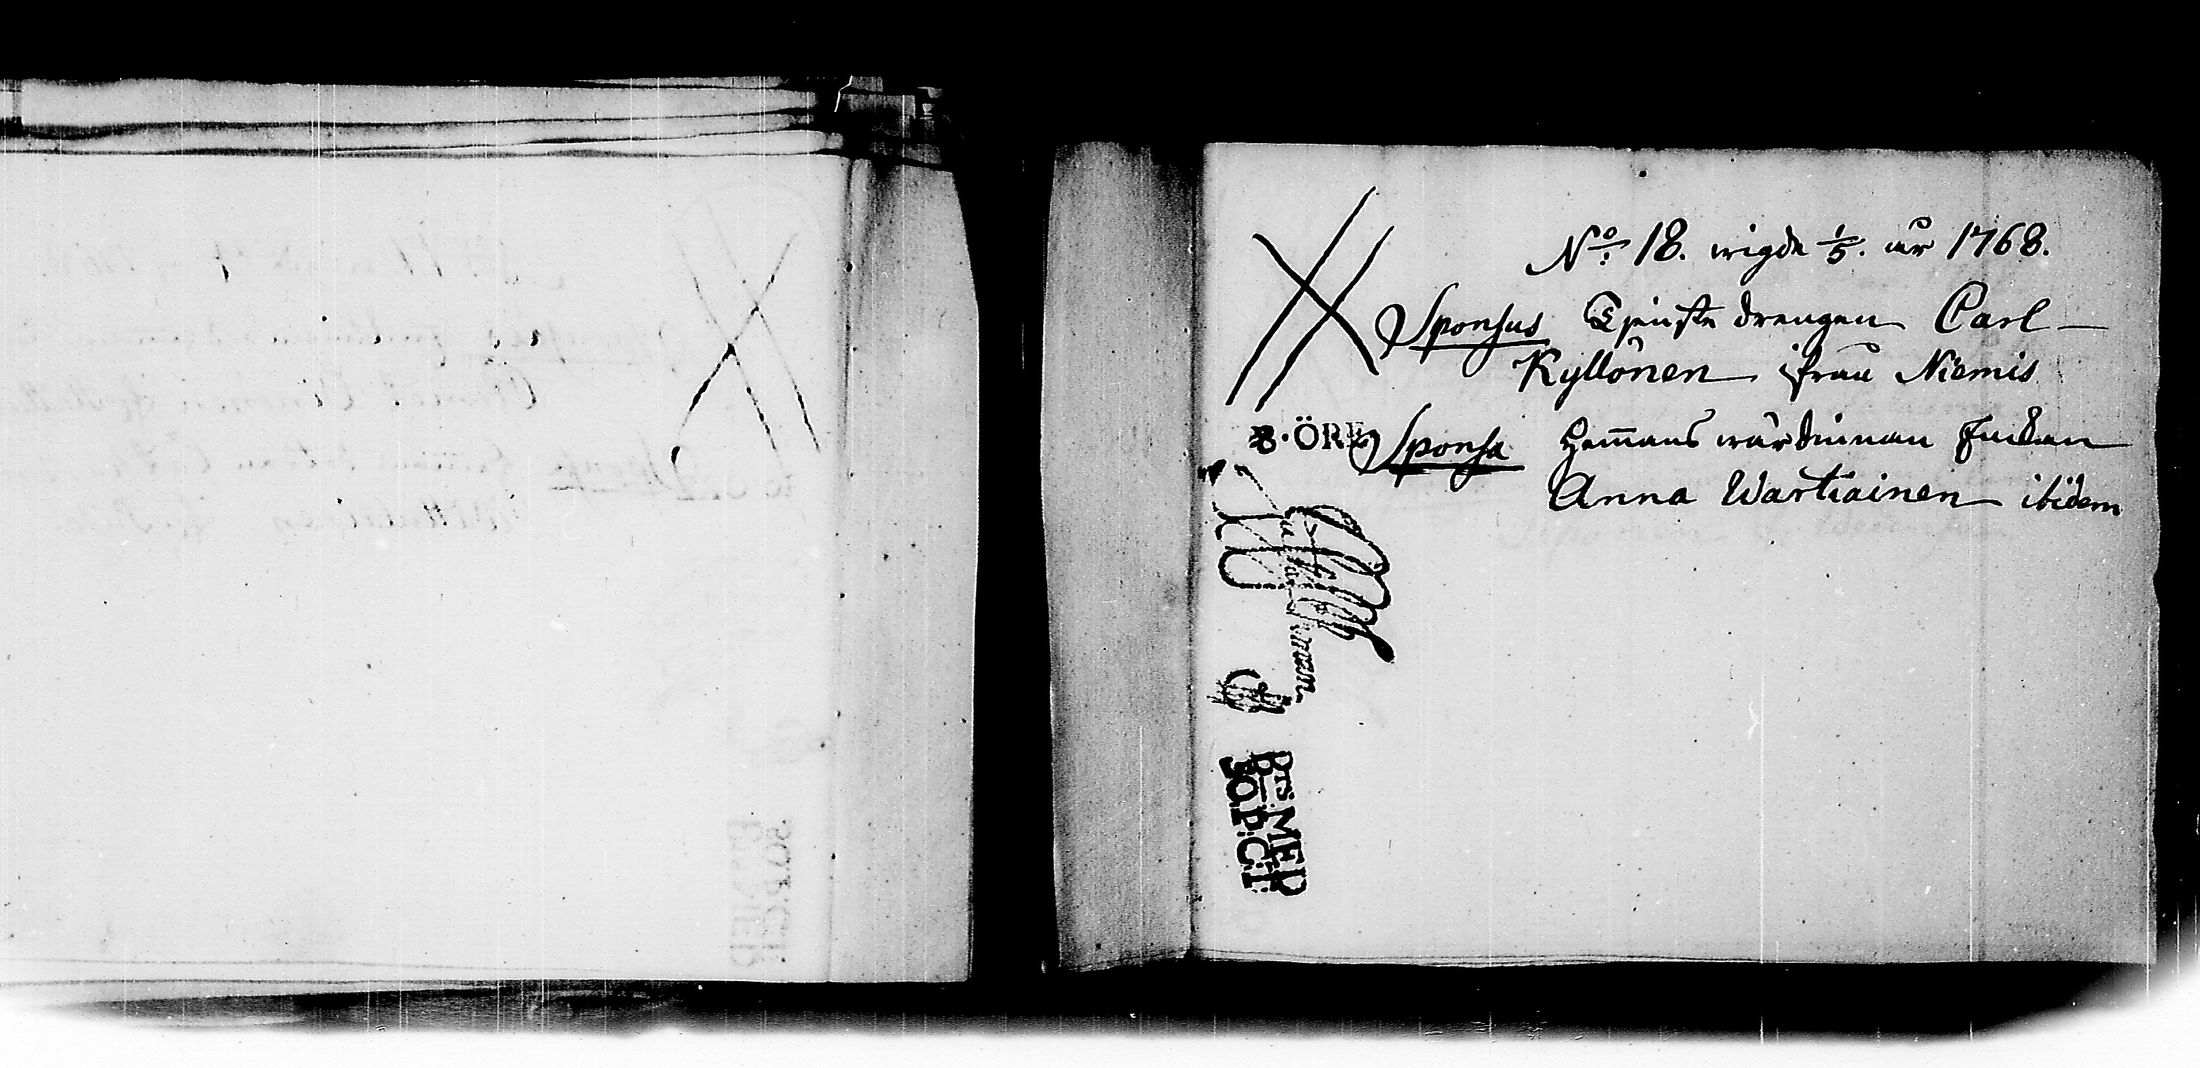 No: 18. wigde 1/5. år 1768.
Sponsus Tjenste drengen Carl
Kyllönen ifrån Niemis
8. ÖRE
Sponsa Hemmans wärdinnan Enckan
Anna Wartiainen ibidem